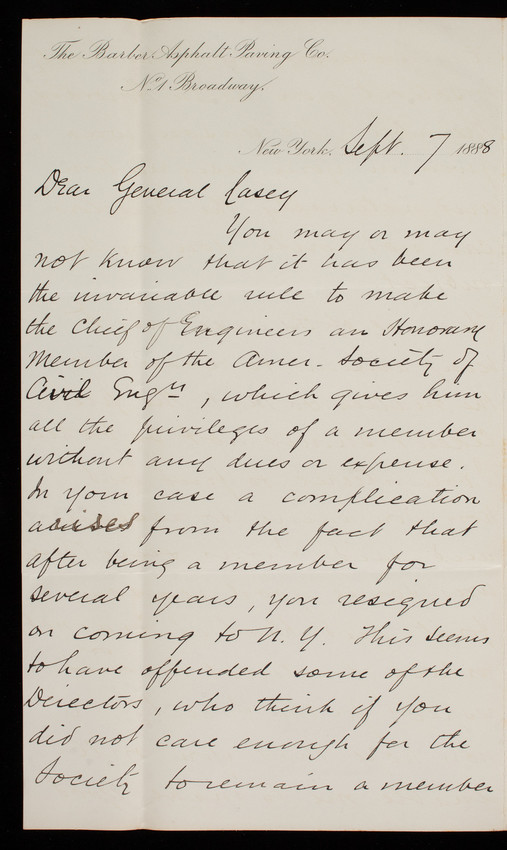 The Barber Asphalt Paving Co.
No. 1 Broadway.
New York, Sept. 7 1888
Dear General Casey
You may or may
not know that it has been
the invariable rule to make
the Chief of Engineers an Honorary
Member of the Amer. Society of
Civil Engrs, which gives him
all the privileges of a member
without any dues or expense.
In your case a complication
arises from the fact that
after being a member for
several years, you resigned
on coming to N.Y. This seems
to have offended some of the
Directors, who think if you
did not care enough for the
Society to remain a member